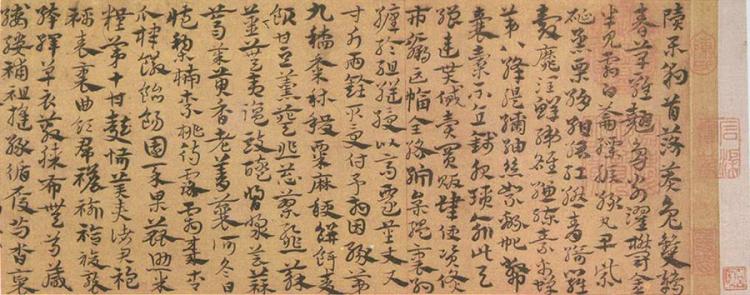 樂豹首落莫兔雙鶴
春草雞翹鳧翁濯鬱金
半見霜白籥縹綟綠丸皂紫
硟烝栗絹紺縉紅繎青綺羅
縠靡潤鮮綈雒縑練素帛蟬
第八絳緹絓紬絲絮綿帊敝
囊橐不直錢服瑣緰此與
繒連貰貸賣買販肆便資貨
市贏匹幅全綌紵枲縕裹約
纏綸組縌綬以高遷量丈尺
寸斤兩銓取受付予相因緣第
九稻黍秫稷粟麻秔餅餌麥
飯甘豆羹葵韭蔥䪥蓼蘇
薑蕪荑鹽豉醯酢漿芸蒜
薺芥茱萸香老菁蘘荷冬日
藏梨柿柰桃待露霜棗杏
瓜棣饊飴餳園菜果蓏助米
糧第十甘麩恬美奏諸君袍
襦表裏曲領裙襜褕袷複褶
袴襌衣蔽膝布母縛
縷補縫緣履舄裒